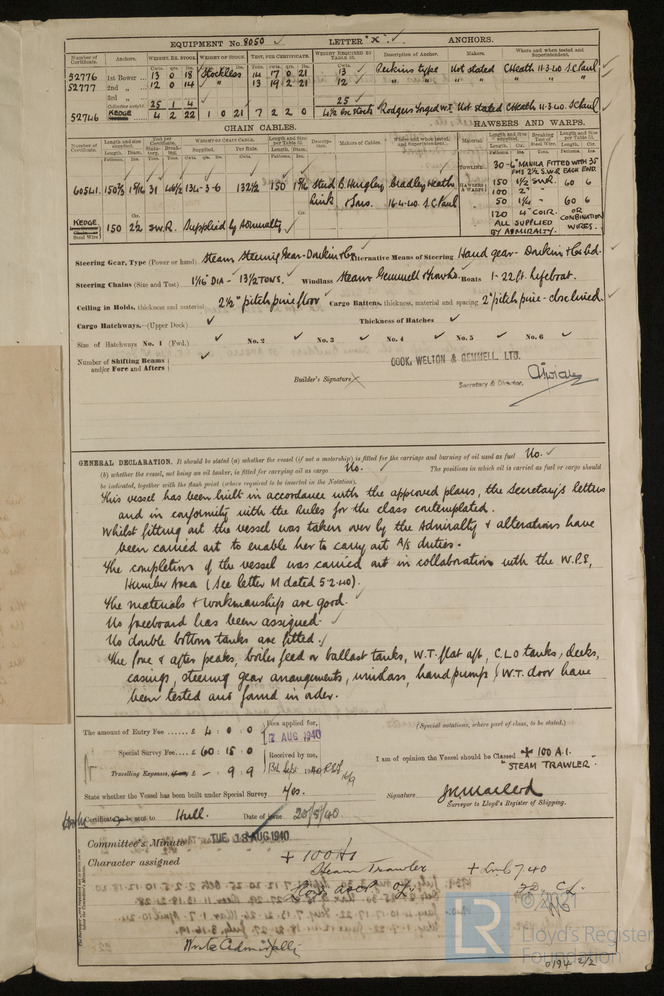 EQUIPMENT No. 8050 LETTER "X" ANCHORS.
Number of Certificate. Anchors. WEIGHT, EX. STOCK. WEIGHT OF STOCK. TEST, PER CERTIFICATE. WEIGHT REQUIRED BY TABLE 53. Description of Anchor. Makers. Where and when tested and Superintendent.
52776 1st Bower 13 0 18 Stockless 14 17 0 21 13 Perkins type Not stated CHeath 11.3.40 S.C.Paul
52777 2nd " 12 0 14 " 13 19 2 21 12 " " " " " "
3rd "
Collective weight 25 1 4 25
52746 KEDGE 4 2 22 1 0 21 7 2 2 0 4½ Ex Stock Rodgers Not stated CHeath 11.3.40 SCPaul
CHAIN CABLES. HAWSERS AND WARPS.
60541. 150 31 46½ 134-3-6 132½ 150 Stud B. Hingley Bradley Heath
Link & Sons. 16.4.40. S.C.Paul
TOWLINE 30 - 6" MANILA FITTED WITH 35
FMS 2½ S.W.R EACH END.
HAWSERS & WARPS 150 1½ SWR. 60 6
100 2" "
50 1¼ " 60 6
120 4" COIR. OR
ALL SUPPLIED COMBINATION
BY ADMIRALTY. WIRES.
KEDGE
Steel Wire 150 2½ S.W.R. Supplied by Admiralty
Steering Gear, Type (Power or hand) Steam Steering Gear - Donkin & Co Alternative Means of Steering Hand gear - Donkin & Co Ltd.
Steering Chains (Size and Test) 1 1/16" DIA - 13½ TONS. Windlass Steam Gemmell & Frow Boats 1 - 22 ft. lifeboat.
Ceiling in Holds, thickness and material 2½" pitch pine floor Cargo Battens, thickness, material and spacing 2" pitch pine - close lined.
Cargo Hatchways.-(Upper Deck) Thickness of Hatches
Size of Hatchways No. 1 (Fwd.) No. 2 No. 3 No. 4 No. 5 No. 6
Number of Shifting Beams
and/or Fore and Afters
COOK, WELTON & GEMMELL, LTD.
Builder's Signature
Secretary & Director.
GENERAL DECLARATION. It should be stated (a) whether the vessel (if not a motorship) is fitted for the carriage and burning of oil used as fuel No.
(b) whether the vessel, not being an oil tanker, is fitted for carrying oil as cargo No. The positions in which oil is carried as fuel or cargo should
be indicated, together with the flash point (where required to be inserted in the Notation).
This vessel has been built in accordance with the approved plans, the Secretary's letters
and in conformity with the Rules for the class contemplated.
Whilst fitting out the vessel was taken over by the Admiralty & alterations have
been carried out to enable her to carry out A/S duties.
The completion of the vessel was carried out in collaboration with the W.P.S,
Humber Area (See letter M dated 5.2.40).
The materials & workmanship are good.
No freeboard has been assigned.
No double bottom tanks are fitted.
The fore & after peaks, boiler feed or ballast tanks, W.T. flat aft, C.L.O tanks, decks,
casings, steering gear arrangements, windlass, hand pumps & W.T. door have
been tested and found in order.
The amount of Entry Fee £ 4 : 0 : 0
Special Survey Fee £ 60 : 15 : 0
Travelling Expenses £ - : 9 : 9
Fees applied for,
2 AUG 1940
Received by me,
(Special notations, where part of class, to be stated.)
I am of opinion the Vessel should be Classed +100 A.1.
"STEAM TRAWLER".
State whether the Vessel has been built under Special Survey Yes.
Signature
Surveyor to Lloyd's Register of Shipping.
Certificate to be sent to Hull. Date of issue 20/8/40.
Committee's Minute TUE 13 AUG 1940
Character assigned +100A1
Steam Trawler + Lmc 7,40
Write Admiralty
© 2021
LR
Lloyd's Register
Foundation
0194 2/2